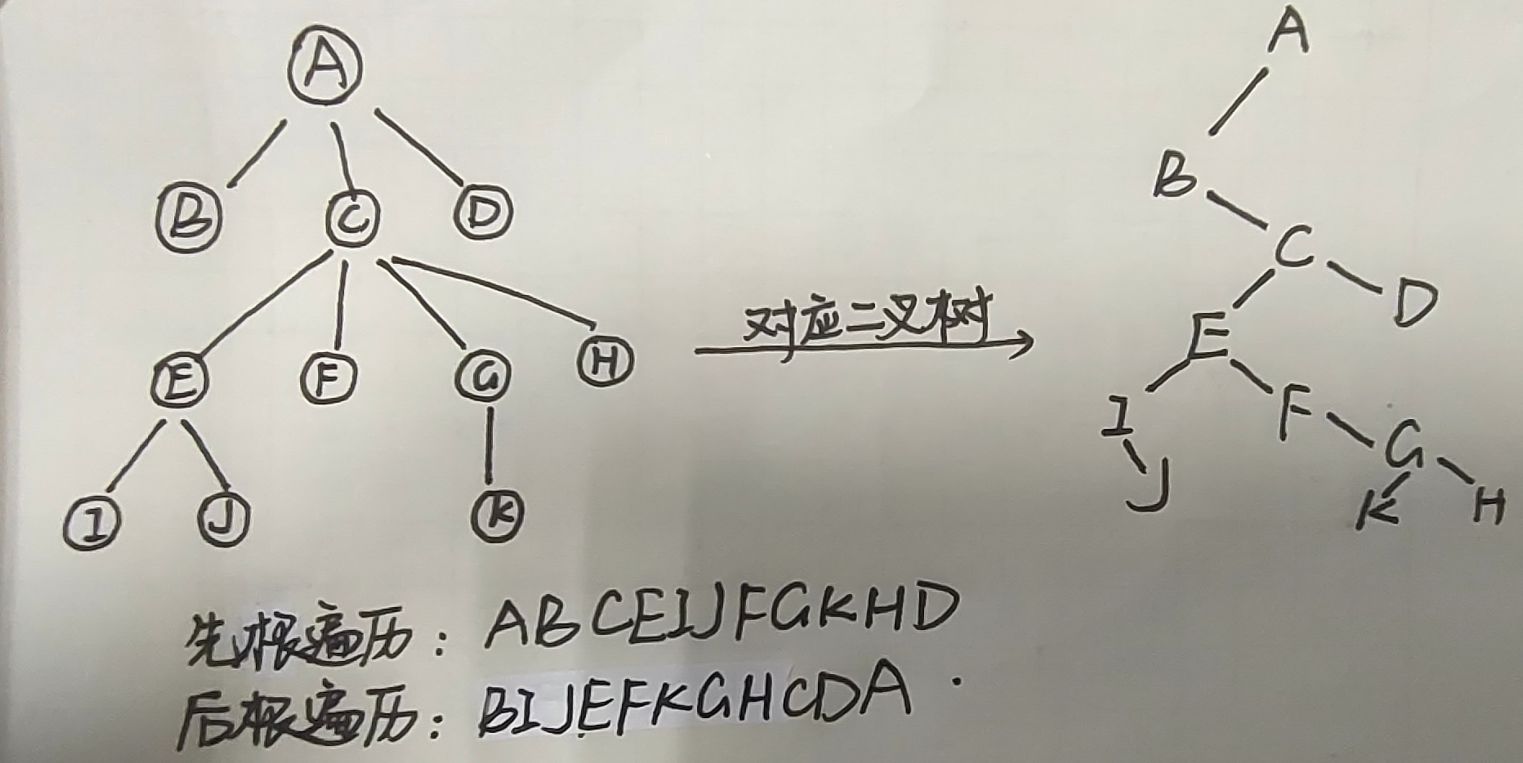 A
B C D
E F G H
I J K
对应二叉树
A
B
C
D
E
I F
G
J
K H
先根遍历: ABCEIJFGKHD
后根遍历: BIJEFKGHCDA.